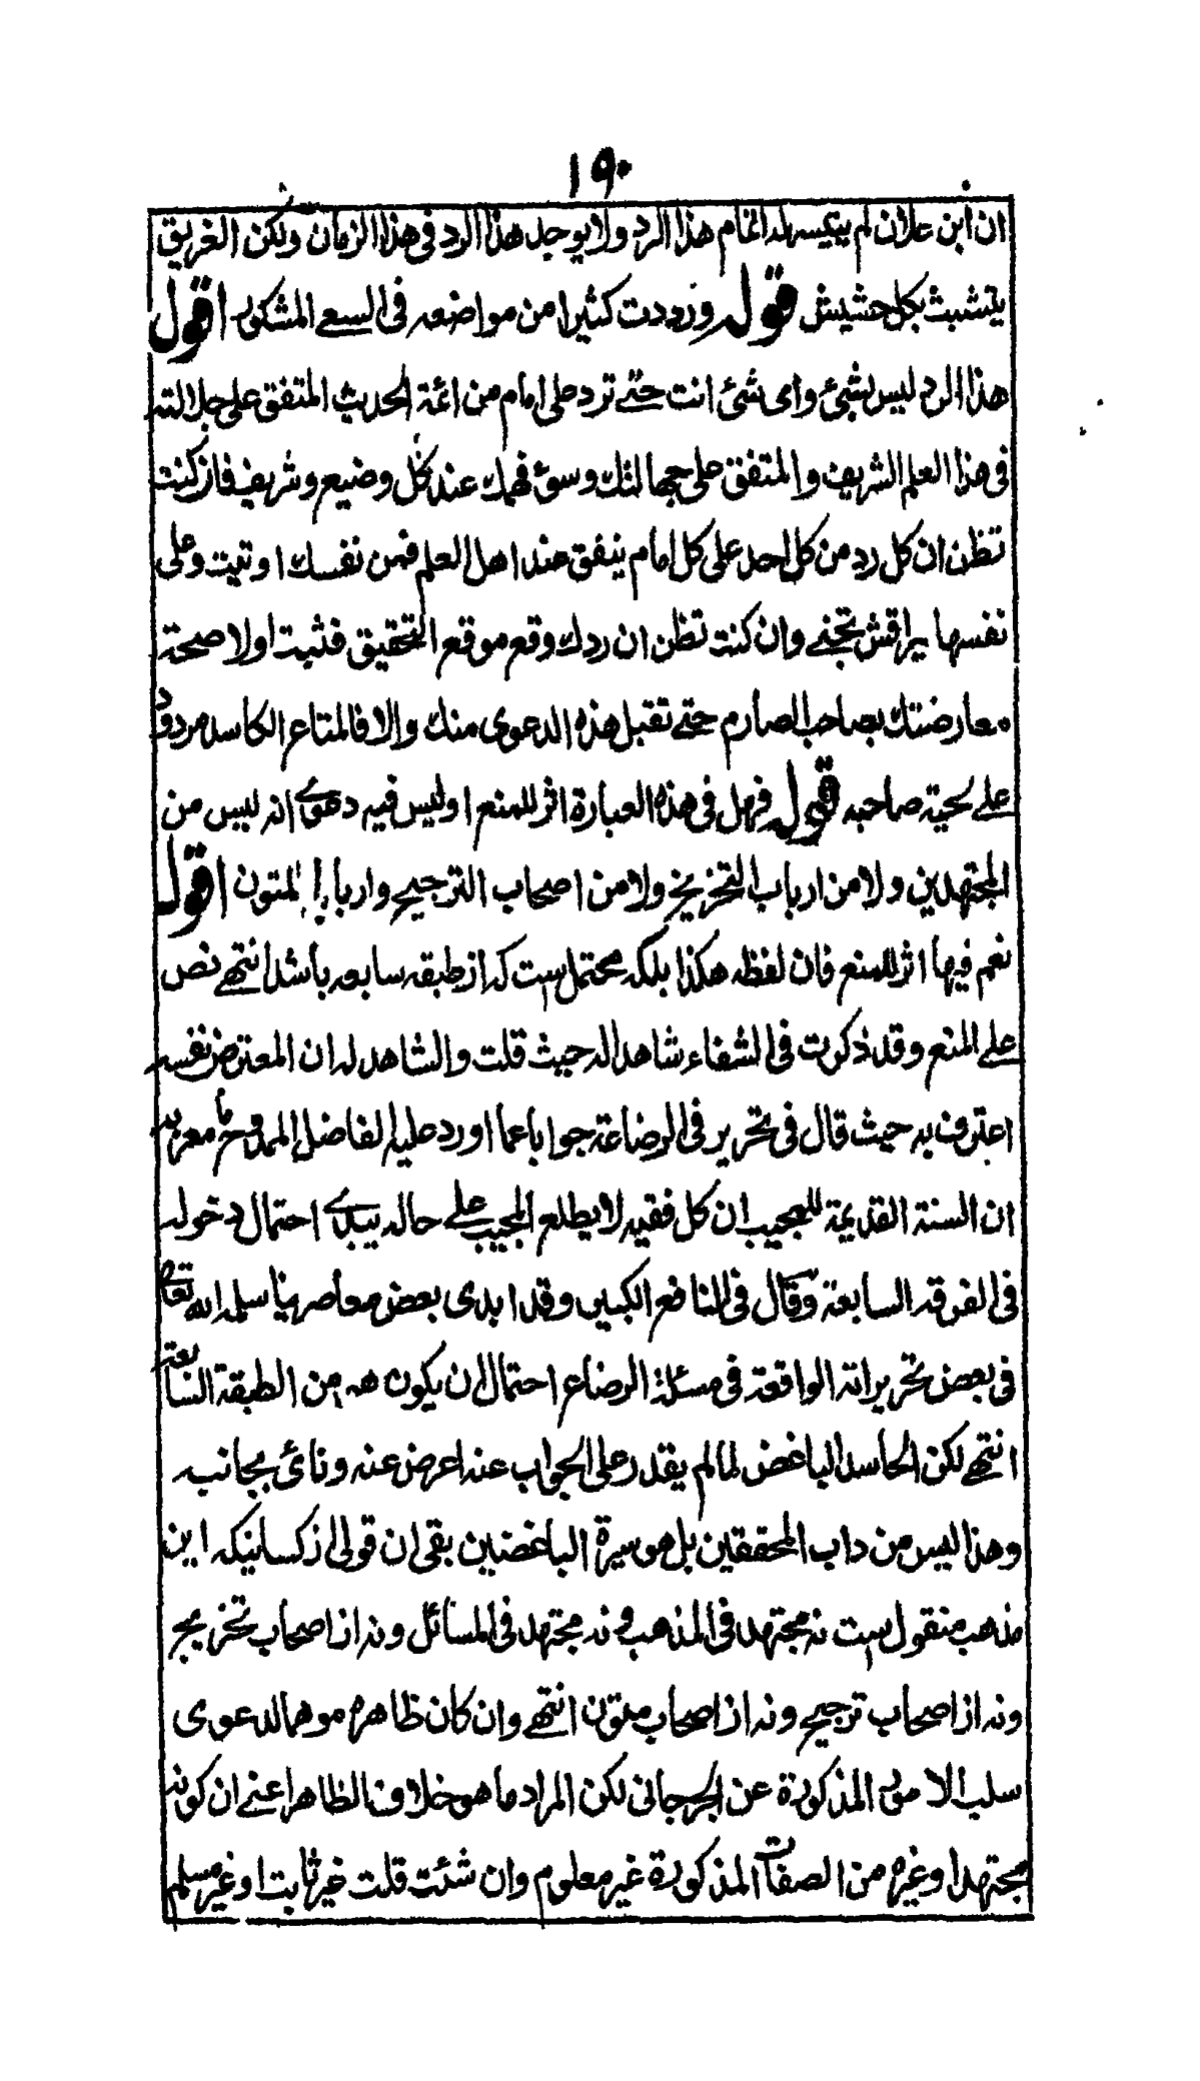 ١٩٠
ان ابن علان لم يتيسر له اتمام هذا الرد ولا يوجد هذا الرد في هذا الزمان ولكن الغريق
يتشبث بكل حشيش قوله وزددت كثيرا من مواضعه في السعي المشكور اقول
هذا الرد ليس بشئ واى شئ انت حتے ترد على امام من ائمة الحديث المتفق على جلالته
في هذا العلم الشريف والمتفق على جهالتك وسوء فهمك عند كل وضيع وشريف فان كنت
تظن ان كل رد من كل احد على كل امام ينفق عند اهل العلم فمن نفسك اوتيت وعلى
نفسها براقش تجنے وان كنت تظن ان ردك وقع موقع التحقيق فثبت اولا صحة
معارضتك بصاحب الصارم حتے تقبل هذه الدعوى منك والا فالمتاع الكاسد مردود
علے لحية صاحبه قوله فهل في هذه العبارة اثر للمنع اوليس فيه دعوے انه ليس من
المجتهدين ولا من ارباب التخريج ولا من اصحاب الترجيح وارباب المتون اقول
نعم فيها اثر للمنع فان لفظه هكذا بلكه محتمل ست كه از طبقه سابعه باشد انتهے نص
علے المنع وقد ذكرت في الشفاء شاهدا له حيث قلت والشاهد له ان المعترض نفسه
اعترف به حيث قال في تحرير في الرضاعة جوابا عما اورد عليه الفاضل الممدوح ما معربه
ان السنة القديمة للمجيب ان كل فقيه لا يطلع المجيب علے حاله يبدے احتمال دخوله
في الفرقة السابعة وقال في المنافع الكبير وقد ابدى بعض معاصرينا سلمه الله تعالى
في بعض تحريراته الواقعة في مسئلة الرضاع احتمال ان يكون هو من الطبقة السابعة
انتهے لكن الحاسد الباغض لما لم يقدر على الجواب عنه اعرض عنه ونائ بجانبه
وهذا ليس من داب المحققين بل هو سيرة الباغضين بقى ان قولى از كسانيكه اين
مذهب منقول ست نه مجتهد في المذهب ونه مجتهد في المسائل ونه از اصحاب تخريج
ونه از اصحاب ترجيح ونه از اصحاب متون انتهے وان كان ظاهره موهما لدعوى
سلب الامور المذكورة عن الجرجانى لكن المراد ما هو خلاف الظاهر اعنے ان كونه
مجتهدا وغيره من الصفات المذكورة غير معلوم وان شئت قلت غير ثابت او غير مسلم